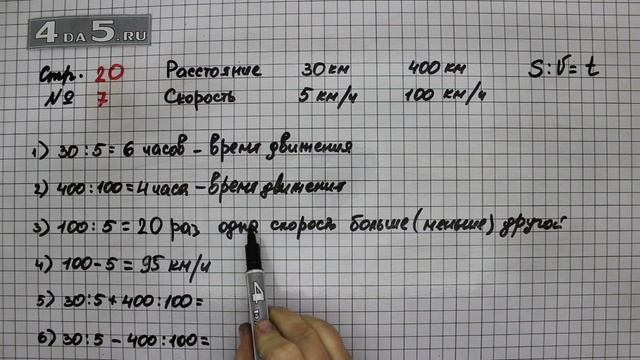 4 DA 5.RU
Стр. 20 Расстояние 30 км 400 км S:V=t
№ 7 Скорость 5 км/ч 100 км/ч
1) 30:5=6 часов – время движения
2) 400:100=4 часа – время движения
3) 100:5=20 раз одна скорость больше (меньше) другой
4) 100-5=95 км/ч
5) 30:5+400:100=
6) 30:5-400:100=
4